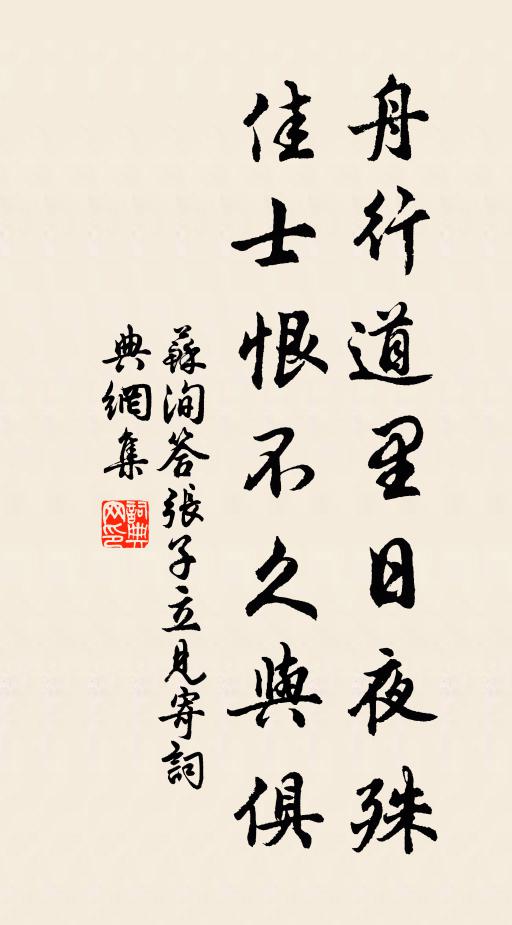 舟行道里日夜殊
佳士恨不久與俱
蘇洵答張子立見寄詞
典網集
詞典网印